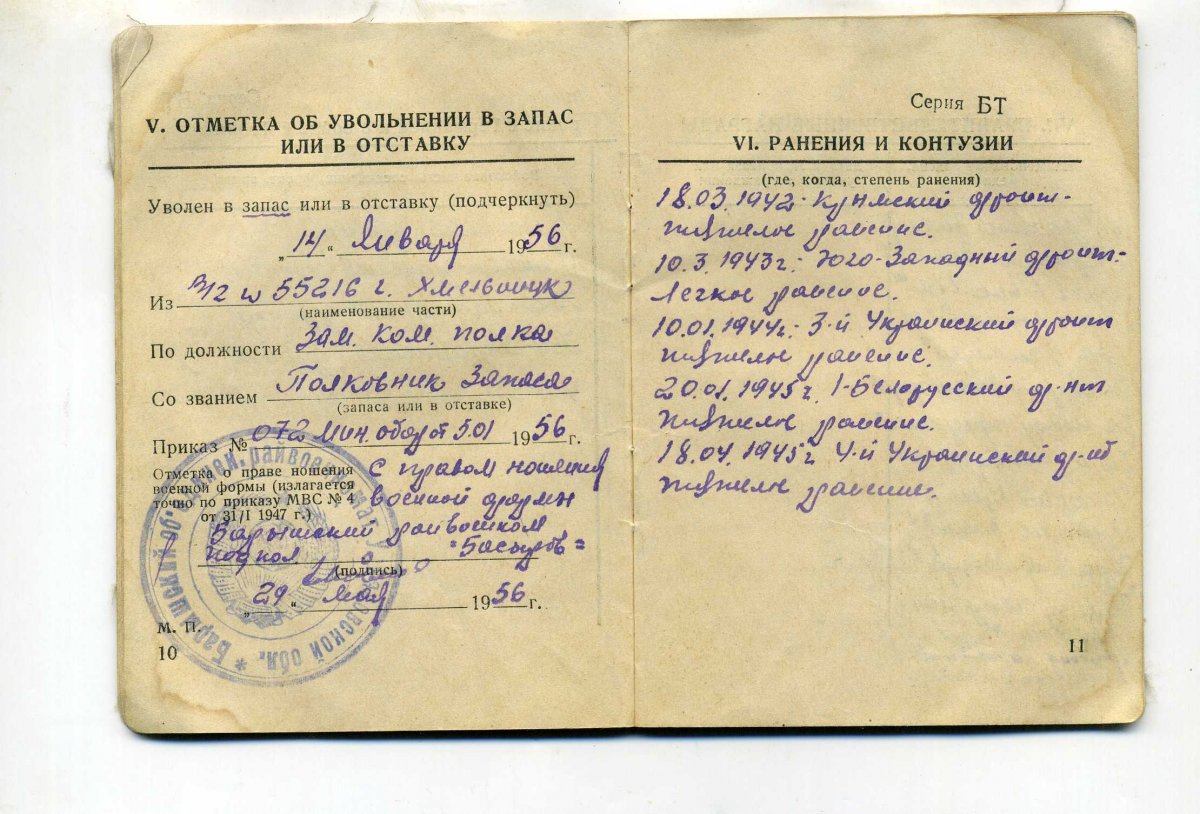 V. ОТМЕТКА ОБ УВОЛЬНЕНИИ В ЗАПАС
ИЛИ В ОТСТАВКУ
Уволен в запас или в отставку (подчеркнуть)
„14“ Января 1956 г.
Из в/ч 55216 г. Хмельницк
(наименование части)
По должности Зам. ком. полка
Со званием Полковник Запаса
(запаса или в отставке)
Приказ № 072 Мин. обор от 5.01 1956 г.
Отметка о праве ношения
военной формы (излагается
точно по приказу МВС № 4
от 31/I 1947 г.)
с правом ношения
военной формы
Барышский райвоенком
подпол. "Басыров"
(подпись)
„29“ мая 1956 г.
М. П.
10
Барышский об. райвое обл.
Серия БТ
VI. РАНЕНИЯ И КОНТУЗИИ
(где, когда, степень ранения)
18.03.1942 - Крымский фронт -
тяжелое ранение.
10.3.1943 г. - Юго-Западный фронт -
Легкое ранение.
10.01.1944 г. - 3-й Украинский фронт
тяжелое ранение.
20.01.1945 г. 1-Белорусский фр-нт
тяжелое ранение.
18.04.1945 г. 4-й Украинский
тяжелое ранение.
11